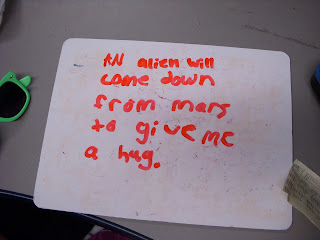 AN alien will
come down
from mars
to give me
a hug.